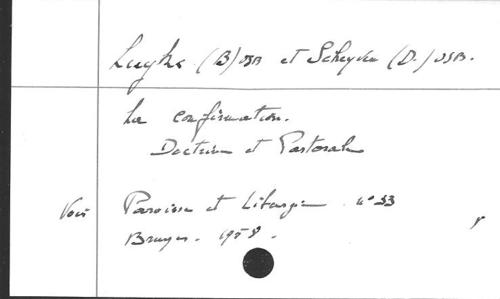 Luykx (B) OSB et Scheyven (D.) OSB.
La confirmation.
Doctrine et Pastorale
Voir Paroisse et Liturgie n° 33
Bruges. 1958.